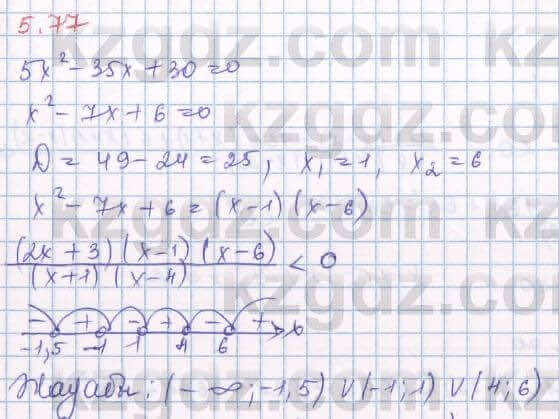 5.77
5x² - 35x + 30 = 0
x² - 7x + 6 = 0
D = 49 - 24 = 25, x₁ = 1, x₂ = 6
x² - 7x + 6 = (x-1)(x-6)
(2x+3)(x-1)(x-6)
/ (x+1)(x-4) < 0
- + - + - +
-1,5 -1 1 4 6 x
Жауабы: (-∞; -1,5) ∪ (-1; 1) ∪ (4; 6)
kzgdz.com
kzgdz.com
kzgdz.com
kzgdz.com